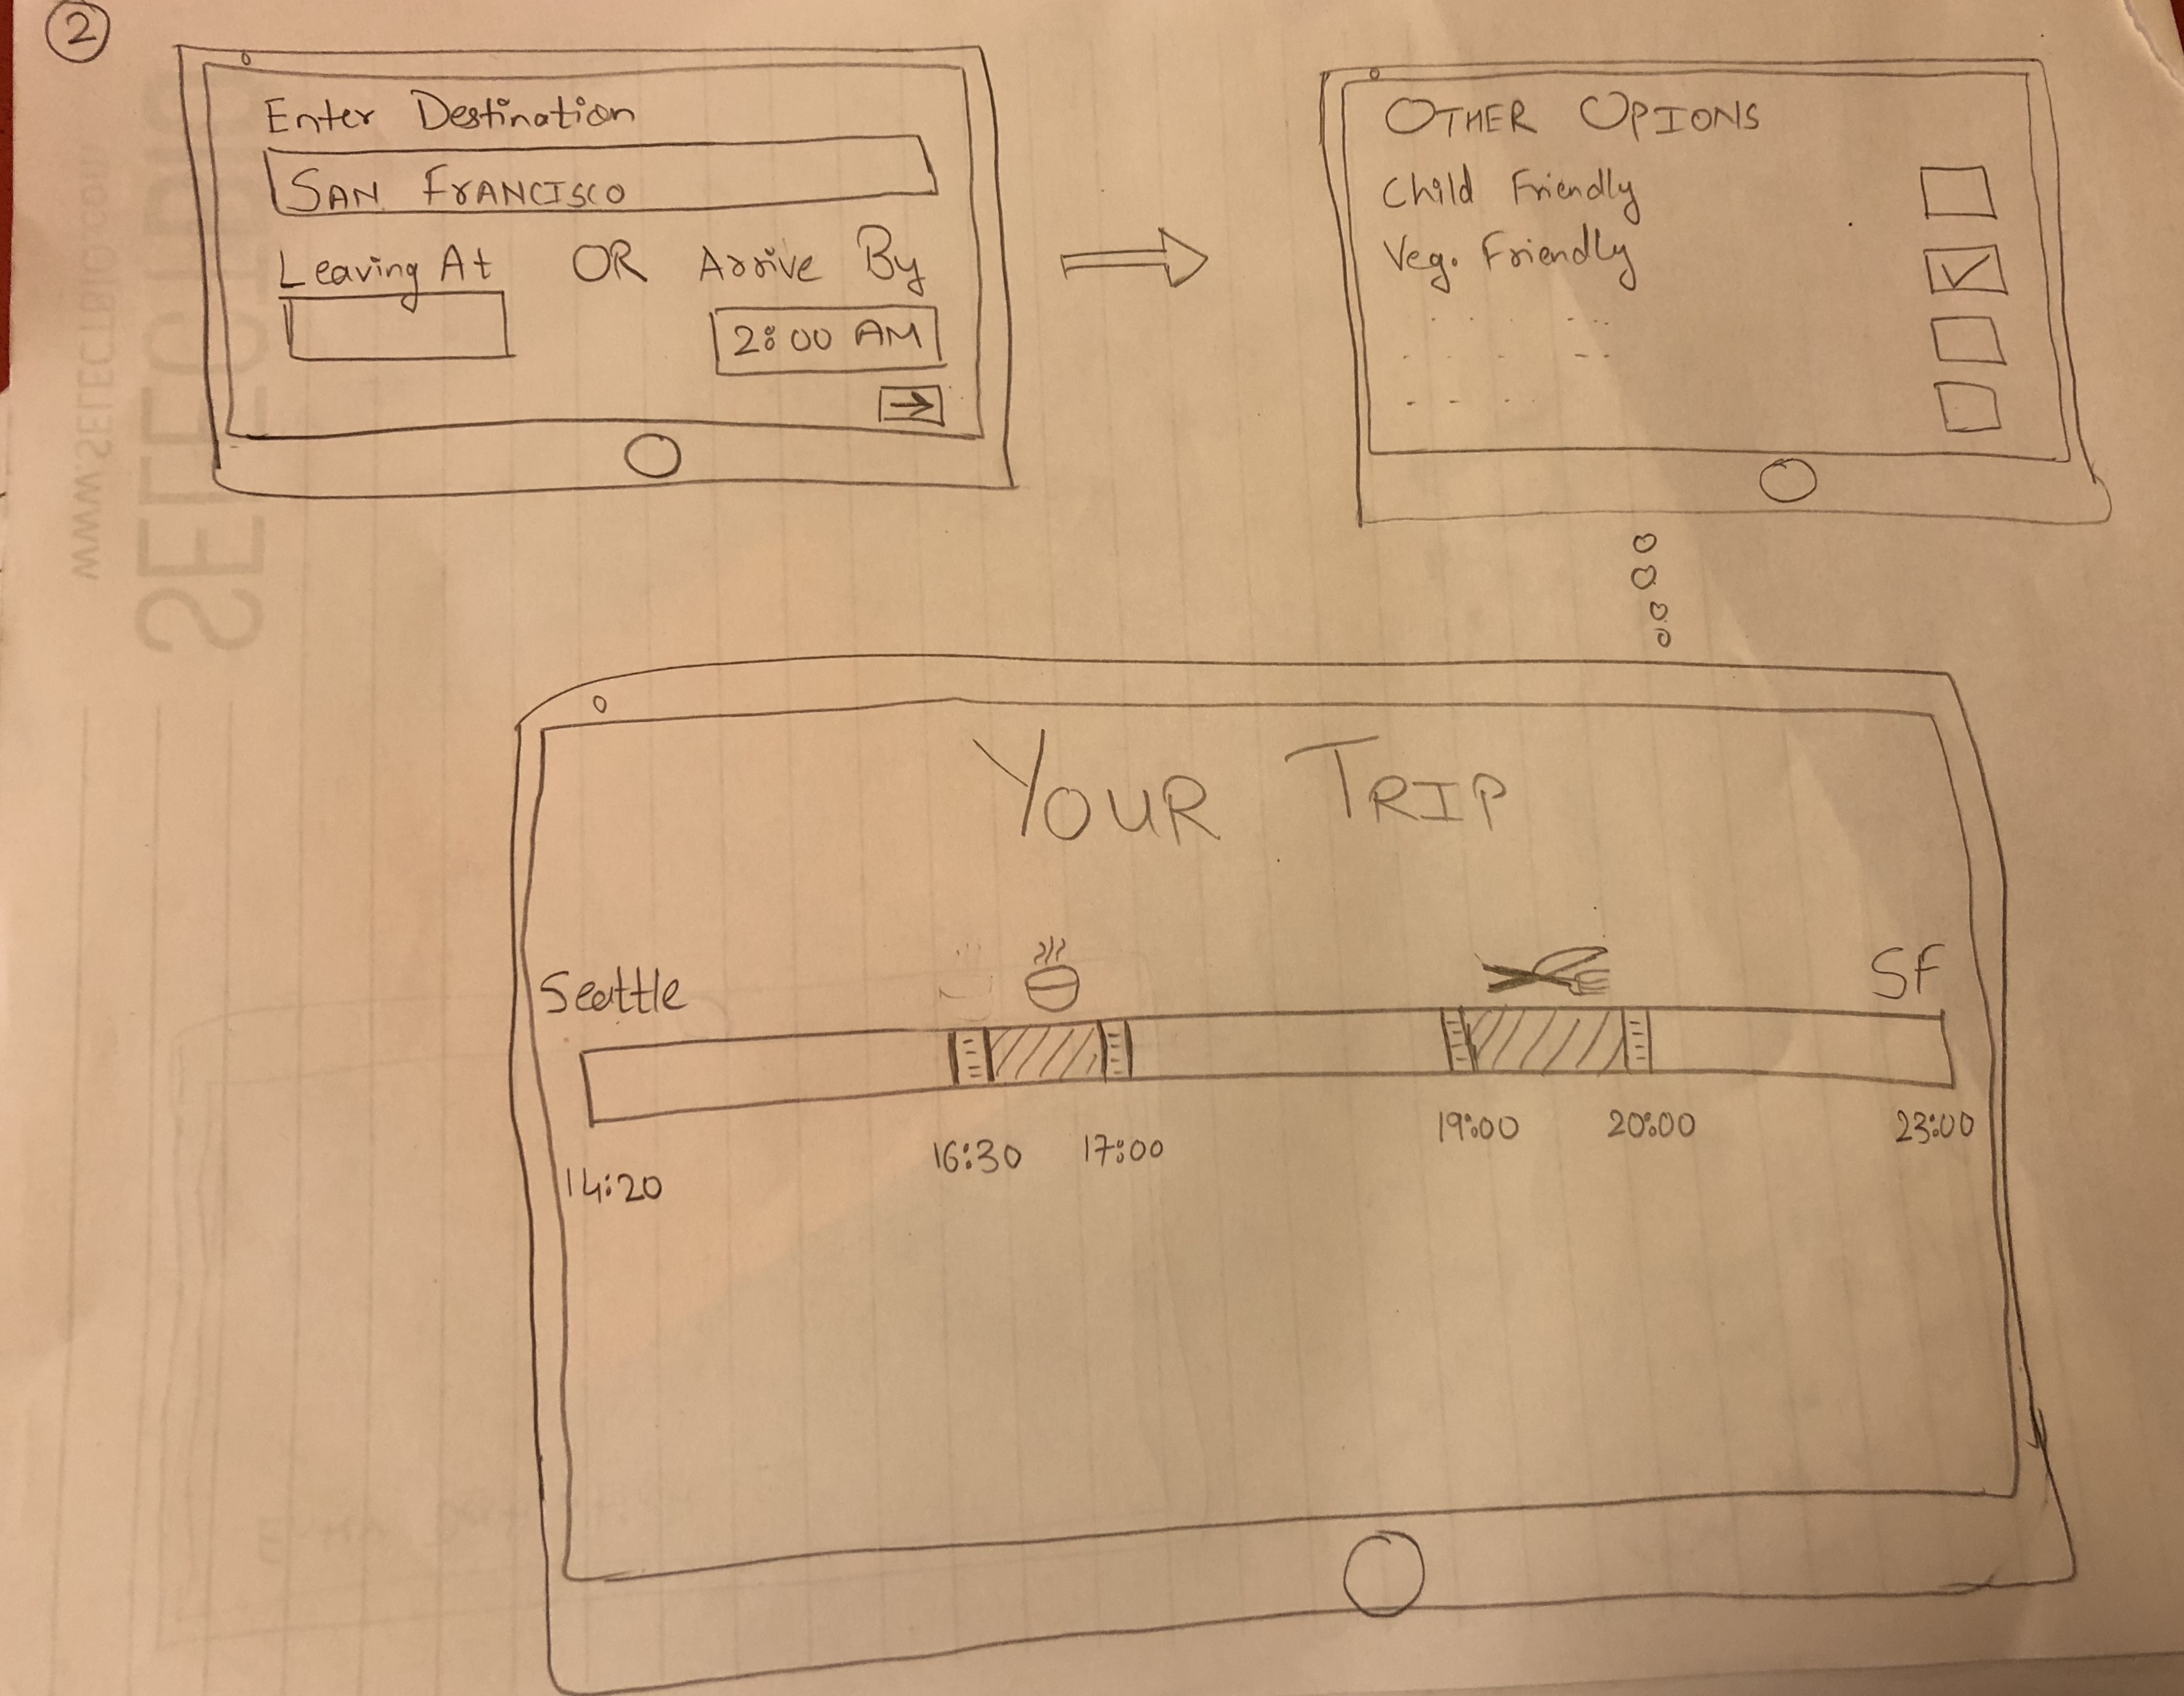 2
Enter Destination
SAN FRANCISCO
Leaving At OR Arrive By
2:00 AM
OTHER OPTIONS
Child Friendly
Veg. Friendly
YOUR TRIP
Seattle
SF
14:20
16:30
17:00
19:00
20:00
23:00
www.SELECTBIO.com
SELECTBIO